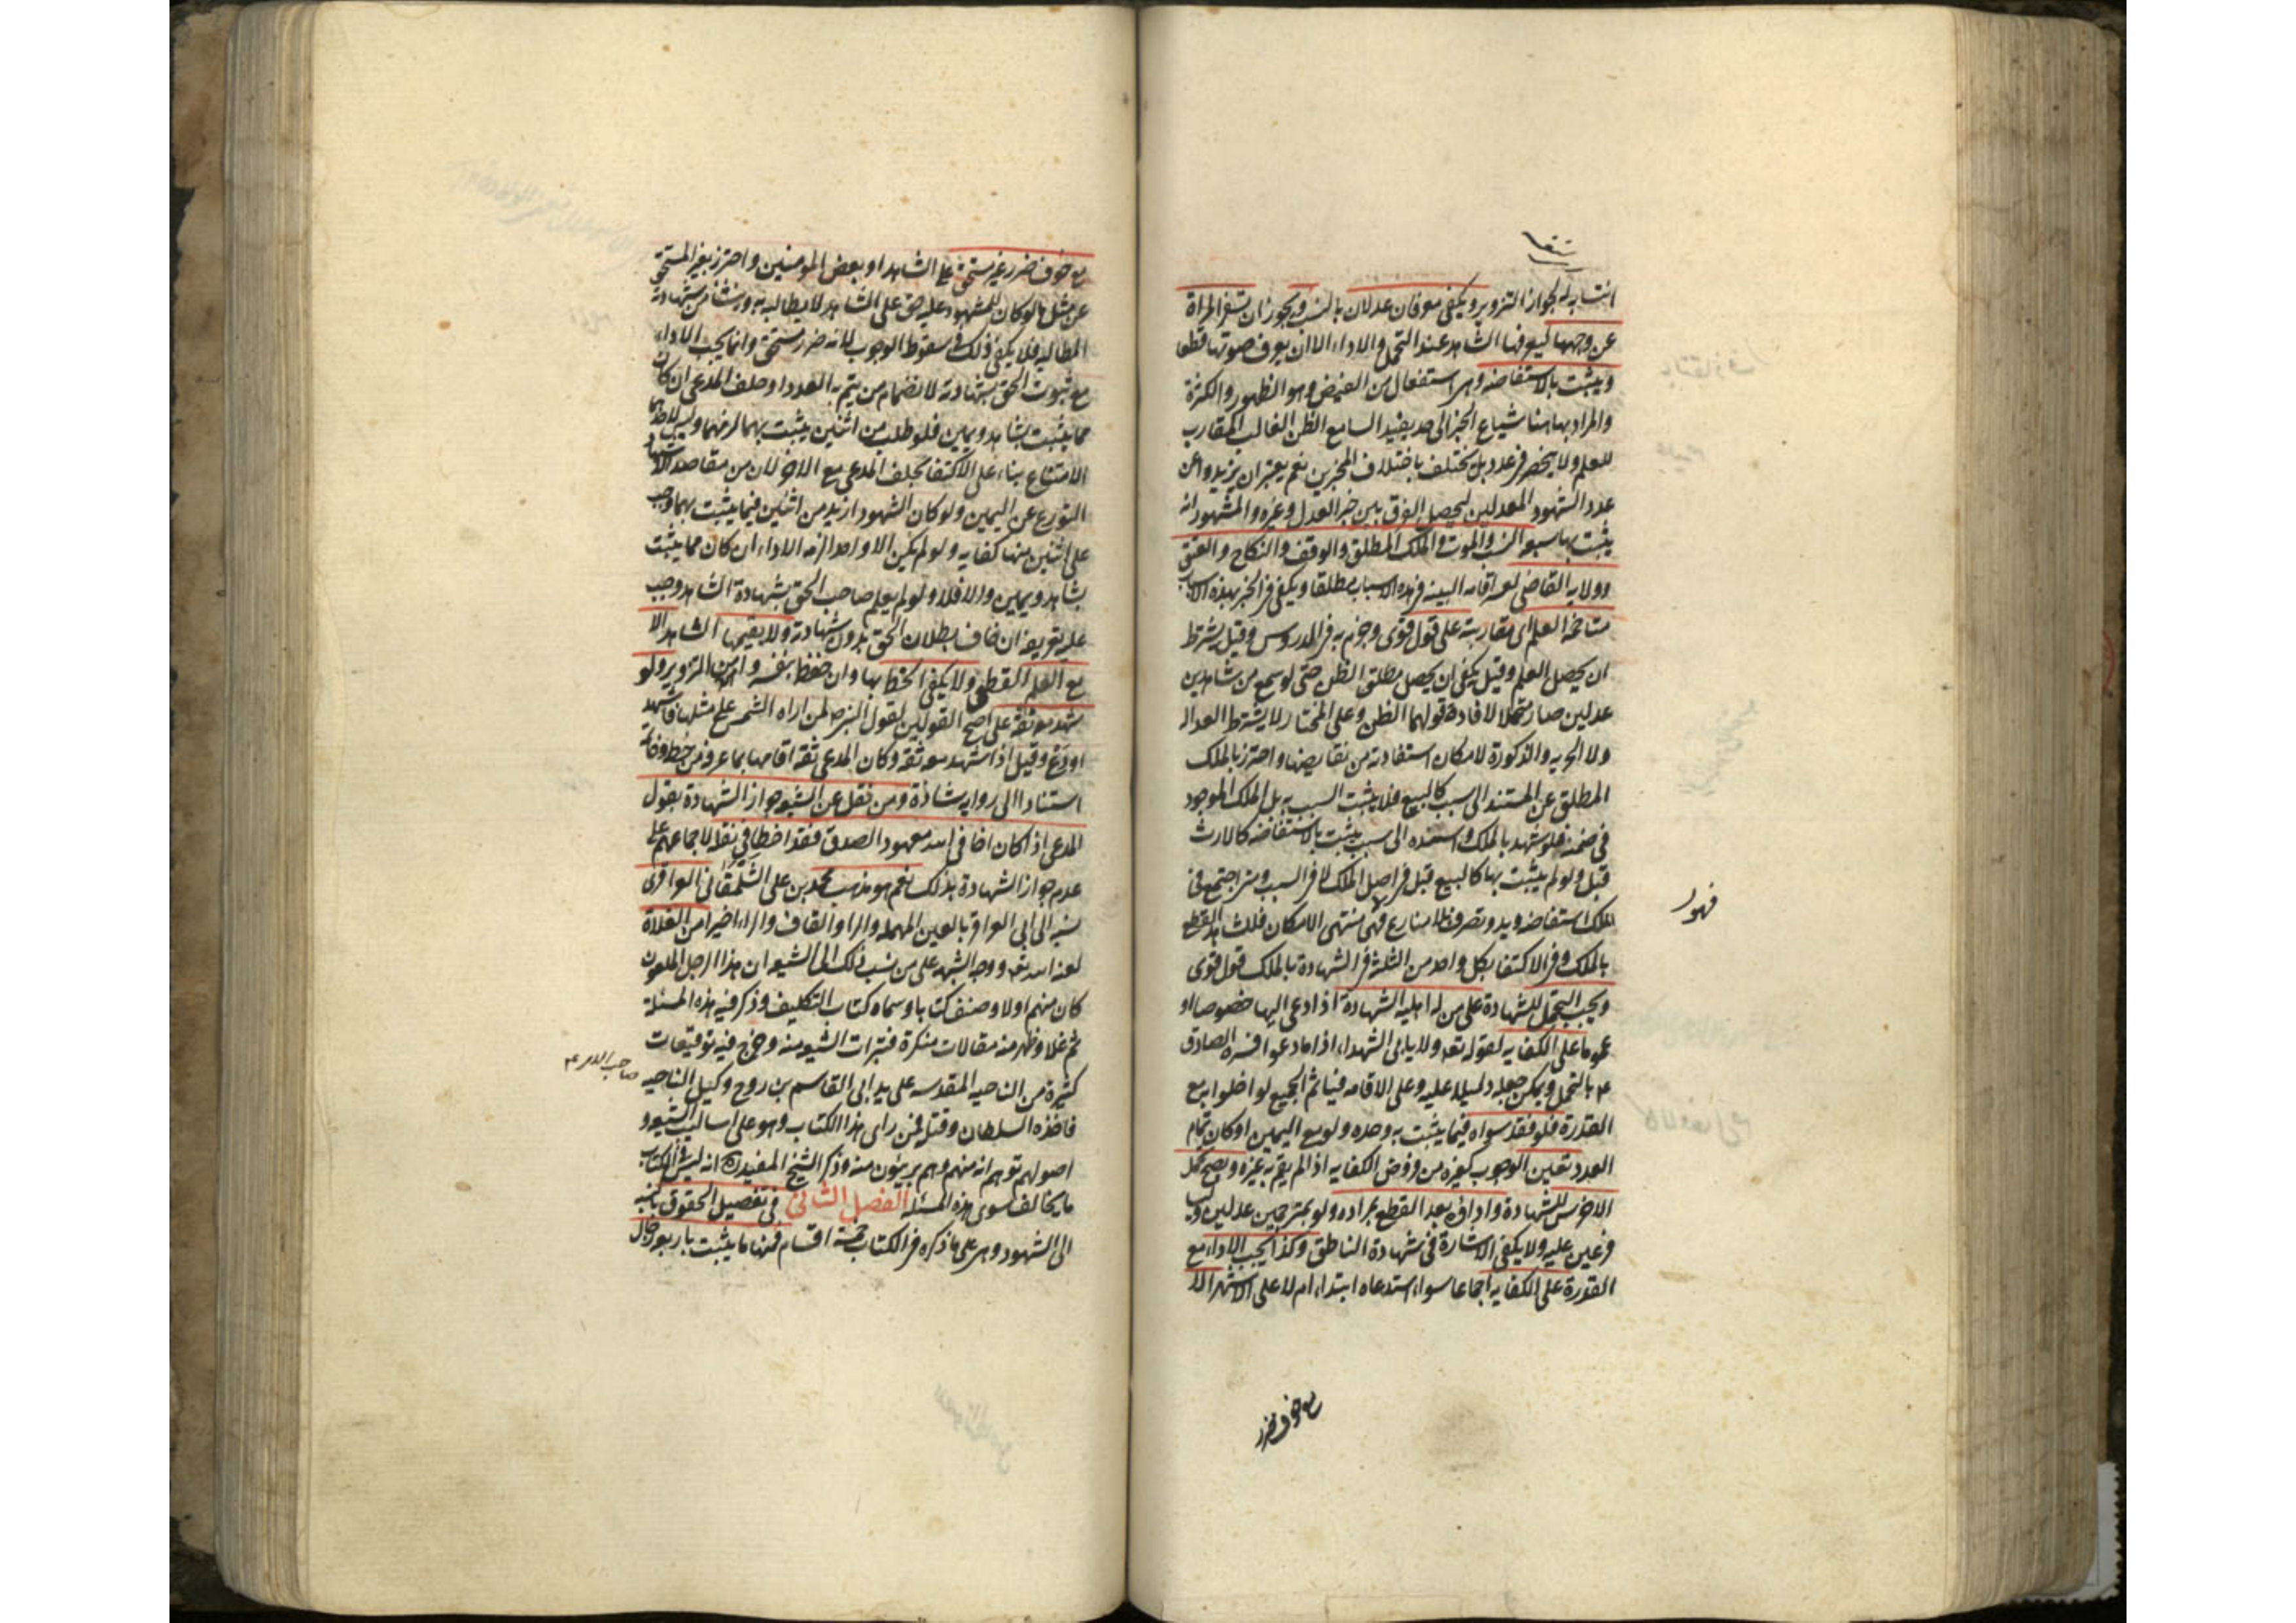 انتسابه له لجواز التزوير ويكفي معرفان عدلان بالنسب ويجوز ان تسفر المراة
عن وجهها ليعرفها الشاهد عند التحمل والاداء الا ان يعرف صوتها قطعا
ويثبت بالاستفاضه وهى استفعال من الفيض وهو الظهور والكثرة
والمراد بها هنا شياع الخبر الى حد يفيد السامع الظن الغالب المقارب
للعلم ولا ينحصر فى عدد بل يختلف باختلاف المخبرين نعم يعتبر ان يزيدوا عن
عدد الشهود المعدلين ليحصل الفرق بين خبر العدل وغيره والمشهور انه
يثبت بها سبعه النسب والموت والملك المطلق والوقف والنكاح والعتق
وولايه القاضى لعسر اقامه البينه فى هذه الاسباب مطلقا ويكفى فى الخبر بهذه الاسباب
متاخمة العلم اى مقاربته على قول قوى وجزم به فى الدروس وقيل يشترط
ان يحصل العلم وقيل يكفى ان يحصل مطلق الظن حتى لو سمع من شاهدين
عدلين صار متحملا لافادة قولهما الظن وعلى المختار لا يشترط العداله
ولا الحريه والذكورة لامكان استفادته من نقايضها واحترز بالملك
المطلق عن المستند الى سبب كالبيع فلا يثبت السبب به بل الملك الموجود
فى ضمنه فلو شهد بالملك واسنده الى سبب يثبت بالاستفاضه كالارث
قبل ولو لم يثبت بها كالبيع قبل فى اصل الملك لا فى السبب ومتى اجتمع فى
الملك استفاضه ويد وتصرف بلا منازع فهى منتهى الامكان فللشاهد القطع
فهو
بالملك وفى الاكتفا بكل واحد من الثلثة فى الشهادة بالملك قول قوى
ويجب التحمل للشهادة على من له اهليه الشهادة اذا دعى اليها خصوصا او
عموما على الكفايه لقوله تعه ولا ياب الشهداء اذا ما دعوا فسره الصادق
ع بالتحمل ويمكن جعله دليلا عليه وعلى الاقامه فياثم الجميع لو اخلوا به مع
القدرة فلو فقد سواه فيما يثبت به وحده ولو مع اليمين او كان تمام
العدد تعين الوجوب كغيره من فروض الكفايه اذا لم يقم به غيره ويصح تحمل
الاخرس للشهادة واداؤه بعد القطع بمراده ولو بمترجمين عدلين وليسا
فرعين عليه ولا يكفى الاشارة فى شهادة الناطق وكذا يجب الاداء مع
القدرة على الكفايه اجماعا سواء استدعاه ابتداء ام لا على الاشهر الا
مع خوف ضرر
مع خوف ضرر غير مستحق على الشاهد او بعض المومنين واحترز بغير المستحق
عن مثل ما لو كان للمشهود عليه حق على الشاهد لا يطالبه به وينشا من شهادته
المطالبه فلا يكفى ذلك فى سقوط الوجوب لانه ضرر مستحق وانما يجب الاداء
مع ثبوت الحق بشهادته لانضمام من يتم به العدد او حلف المدعى ان كان
مما يثبت بشاهد ويمين فلو طلب من اثنين يثبت بهما لزمهما وليس لاحدهما
الامتناع بناء على الاكتفا بحلف المدعى مع الاخر لان من مقاصد الاشهاد
التورع عن اليمين ولو كان الشهود ازيد من اثنين فيما يثبت بهما وجب
على اثنين منها كفايه ولو لم يكن الا واحد لزمه الاداء ان كان مما يثبت
بشاهد ويمين والا فلا ولو لم يعلم صاحب الحق بشهادة الشاهد وجب
عليه تعريفه ان خاف بطلان الحق بدون شهادته ولا يقيمها الشاهد الا
مع العلم القطعى ولا يكفى الخط بها وان حفظه بنفسه وامن التزوير ولو
شهد معه ثقة على اصح القولين لقول النبى ص لمن اراه الشمس على مثلها فاشهد
او دع وقيل اذا شهد معه ثقة وكان المدعى ثقة اقامها بما عرف من خطه وخاتمه
استنادا الى روايه شاذة ومن نقل عن الشيعه جواز الشهادة بقول
المدعى اذا كان اخا فى الله معهود الصدق فقد اخطا فى نقله لاجماعهم على
عدم جواز الشهادة بذلك نعم هو مذهب محمد بن على الشلمغانى العزاقرى
نسبه الى ابى العزاقر بالعين المهمله والزا والقاف والراء اخيرا من الغلاة
لعنه الله تعه ووجه الشبهه على من نسب ذلك الى الشيعه ان هذا الرجل الملعون
كان منهم اولا وصنف كتابا وسماه كتاب التكليف وذكر فيه هذه المسئلة
ثم غلا وظهر منه مقالات منكرة فتبرات الشيعه منه وخرج فيه توقيعات
كثيرة من الناحيه المقدسه على يد ابى القاسم بن روح وكيل الناحيه
فاخذه السلطان وقتله فمن راى هذا الكتاب وهو على اساليب الشيعه و
اصولهم توهم انه منهم وهم بريئون منه وذكر الشيخ المفيد ره انه ليس فى الكتاب
ما يخالف سوى هذه المسئله الفصل الثانى فى تفصيل الحقوق بالنسبه
الى الشهود وهى على ما ذكره فى الكتاب خمسة اقسام فمنها ما يثبت باربعه رجال